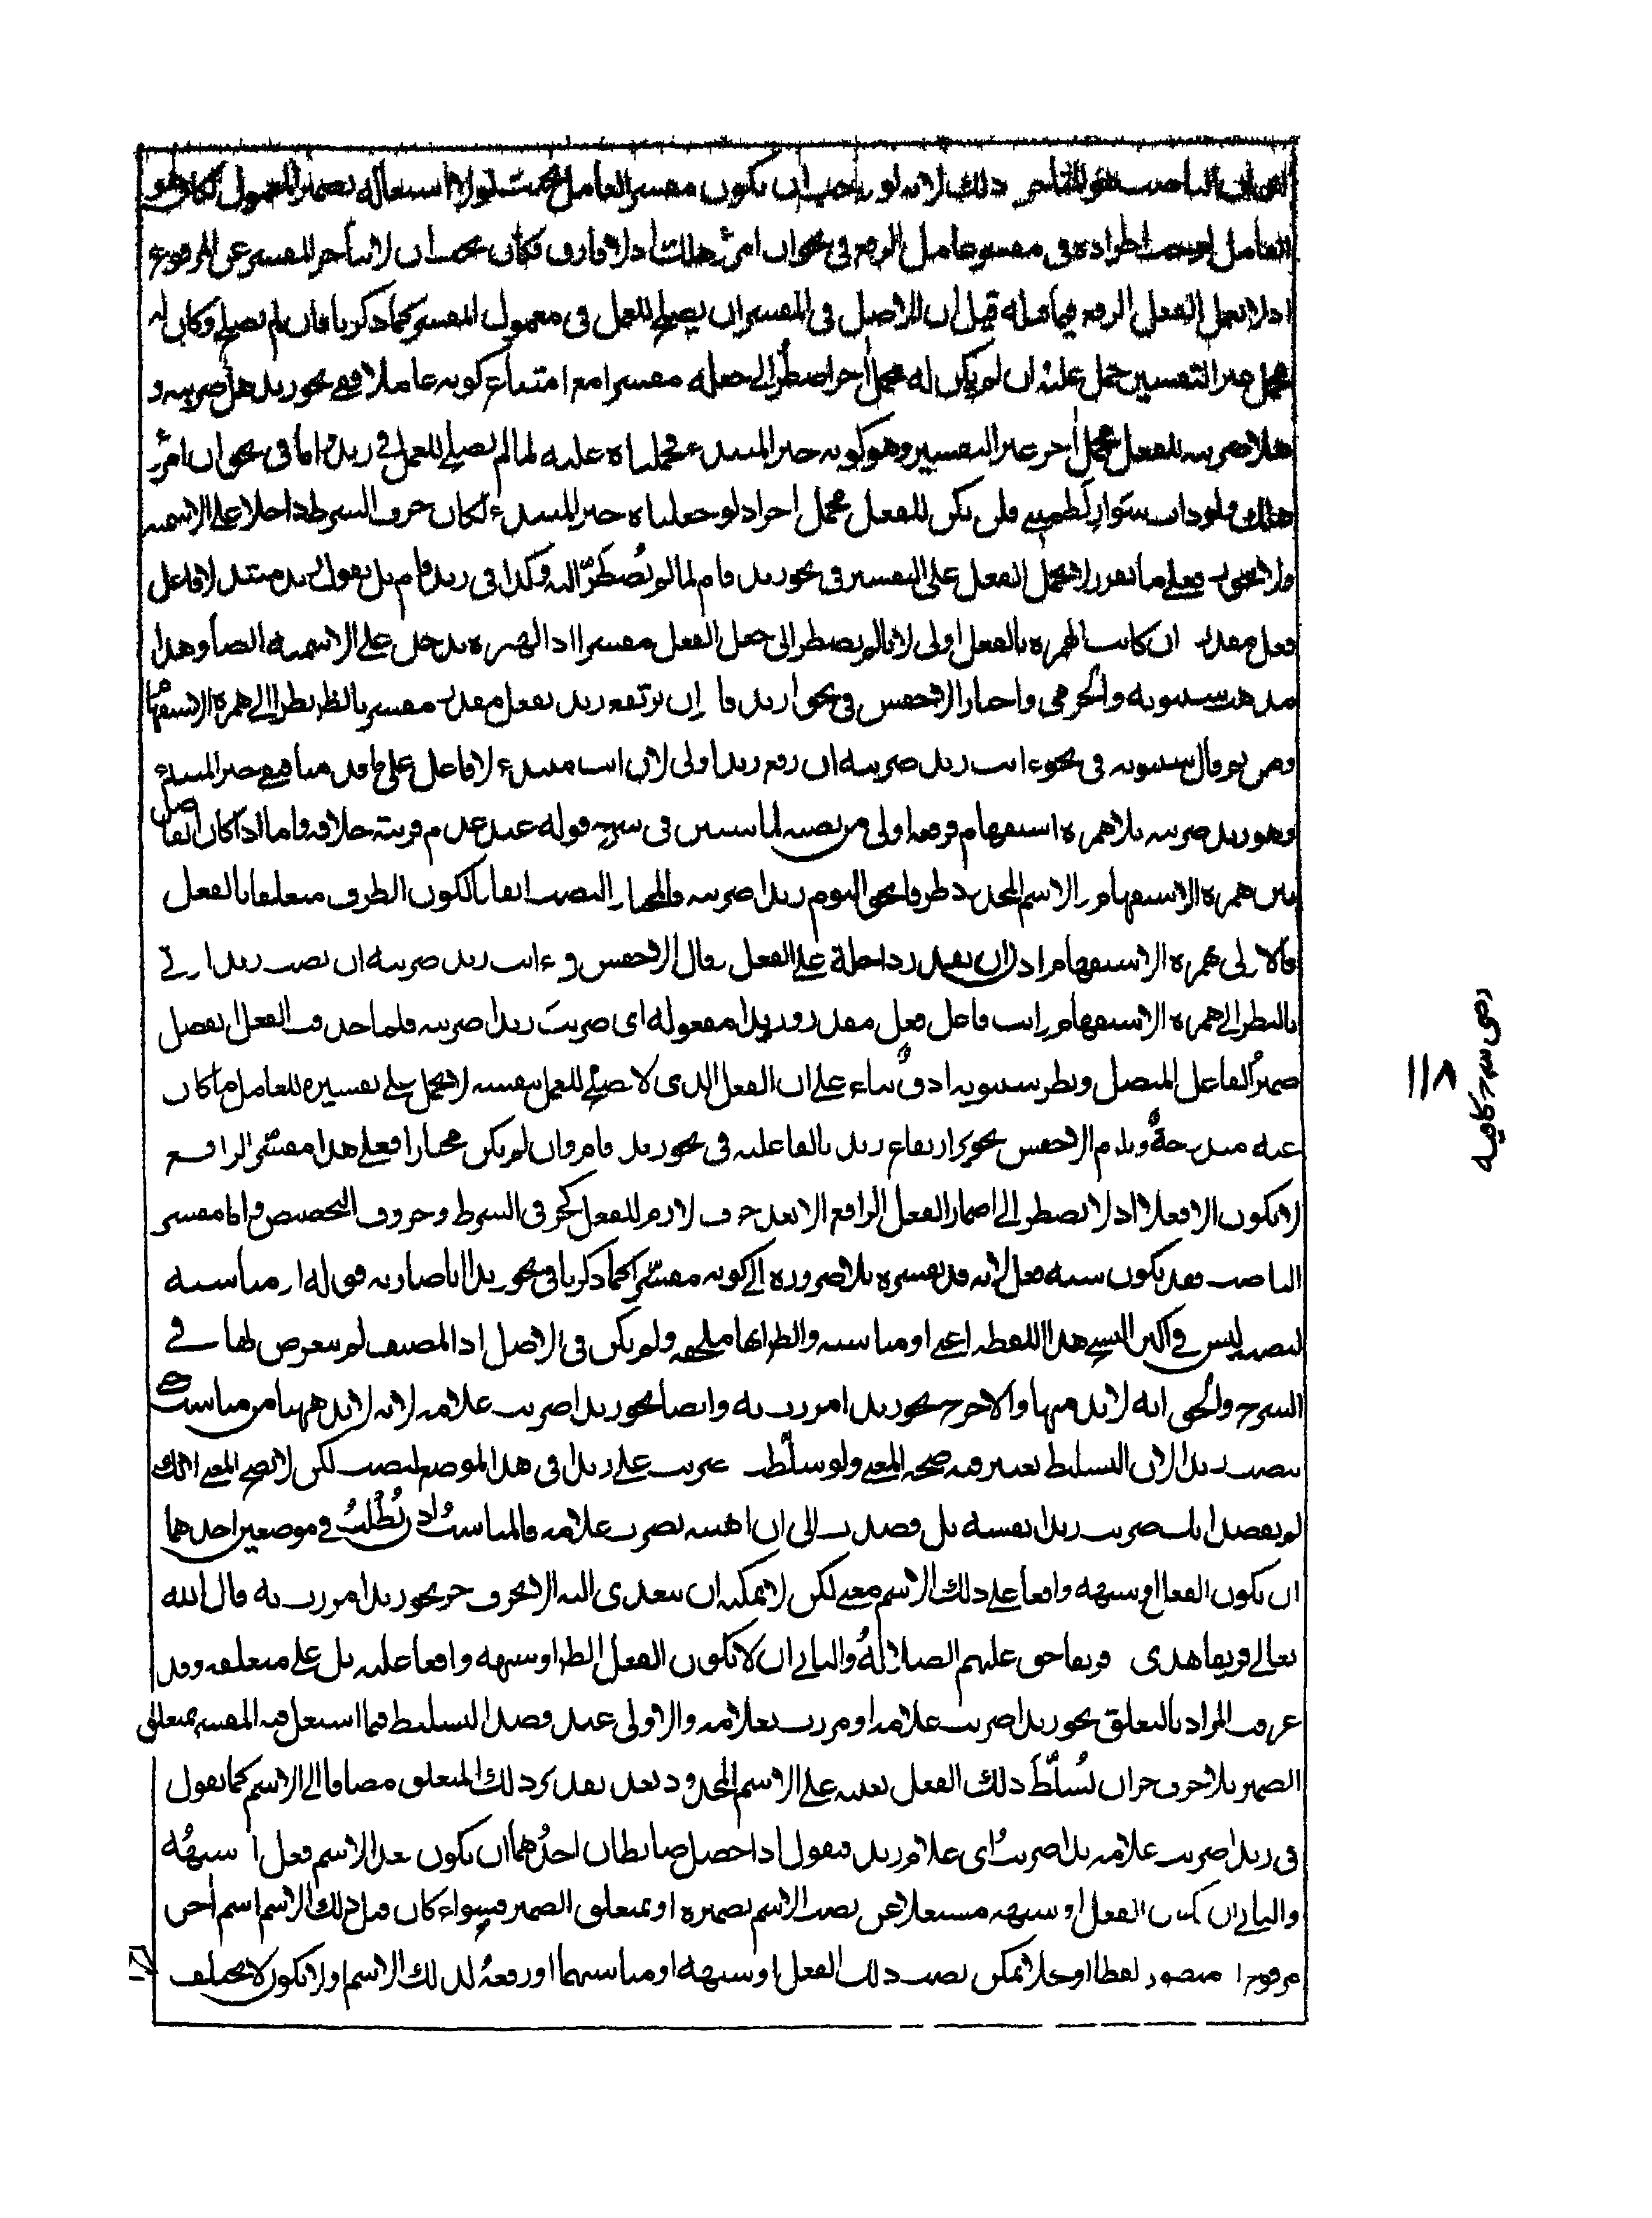 ذلك لانه لو وجب ان يكون مفسر العامل بحيث لولا اشتغاله بضمير المعمول لكان هو
العامل لوجب اطراده في مفسر عامل الرفع في نحو ان امرؤ هلك اذ لا فارق فكان يجب ان لا يتأخر المفسر عن المرفوع
اذ لا يعمل الفعل الرفع فيما قبله قيل ان الاصل في المفسر ان يصلح للعمل في معمول المفسر كما ذكرنا فان لم يصلح وكان له
محمل غير التفسير حمل عليه وان لم يكن له محمل آخر اضطر الى جعله مفسرا مع امتناع كونه عاملا ففي نحو زيد هل ضربته و
هلا ضربته للفعل محمل آخر غير التفسير وهو كونه خبر المبتدء فحملناه عليه لما لم يصلح للعمل في زيد واما في نحو ان امرؤ
هلك ولو ذات سوار لطمتني فلم يكن للفعل محمل آخر اذ لو جعلناه خبر المبتدء لكان حرف الشرط داخلا على الاسمية
ولا يجوز فعلى ما تقرر لا يحمل الفعل على التفسير في نحو زيد قام لما لم نضطر اليه وكذا في ازيد قام بل نقول زيد مبتدأ لا فاعل
فعل مقدر وان كانت الهمزة بالفعل اولى لانا لم نضطر الى جعل الفعل مفسرا اذ الهمزة تدخل على الاسمية ايضا وهذا
مذهب سيبويه والجرمي واختار الاخفش في نحو ازيد قام ان يرتفع زيد بفعل مقدر مفسر بالظاهر نظرا الى همزة الاستفهام
ومن ثم قال سيبويه في نحو ءانت زيد ضربته ان رفع زيد اولى لان انت مبتدء لا فاعل على ما قدمنا فبقي خبر المبتدء
وهو زيد ضربته بلا همزة استفهام فرفعه اولى من نصبه لما تبين في شرح قوله عند عدم قرينة خلافه واما اذا كان الفاصل
بين همزة الاستفهام والاسم المحدود ظرفا نحو اليوم زيدا ضربته فالمختار النصب اتفاقا لكون الظرف متعلقا بالفعل
فالاولى بهمزة الاستفهام اذن ان يقدر داخلة على الفعل وقال الاخفش في ءانت زيد ضربته ان نصب زيد اولى
بالنظر الى همزة الاستفهام وانت فاعل فعل مقدر وزيدا مفعوله اي ضربت زيدا ضربته فلما حذف الفعل انفصل
ضمير الفاعل المتصل ونظر سيبويه ادق بناء على ان الفعل الذي لا يصلح للعمل بنفسه لا يحمل على تفسيره للعامل ما كان
عنه مندوحة ويلزم الاخفش تجويز ارتفاع زيد بالفاعلية في نحو زيد قام وان لم يكن مختارا فعلى هذا مفسر الرافع
لا يكون الا فعلا اذ لا نضطر الى اضمار الفعل الرافع الا بعد حرف لازم للفعل كحرفي الشرط وحروف التحضيض واما مفسر
الناصب فقد يكون شبه فعل لانه قد نفسره بلا ضرورة الى كونه مفسرا كما ذكرنا في نحو زيدا انا ضاربه قوله او مناسبه
لنصبه ليس في اكثر النسخ هذا اللفظة اعني او مناسبه والظاهر انها ملحقه ولم يكن في الاصل اذ المصنف لم يتعرض لها في
الشرح والحق انه لا بد منها والا خرج نحو زيدا مررت به وايضا نحو زيدا ضربت غلامه لانه لا بد ههنا من مناسب
ينصب زيدا لان التسليط يعتبر فيه صحة المعنى ولو سلطت ضربت على زيد في هذا الموضع لنصب لكن لا يصح المعنى لانك
لم تقصد انك ضربت زيدا نفسه بل قصدت الى انك اهنته بضرب غلامه فالمناسب اذن يطلب في موضعين احدهما
ان يكون الفعل او شبهه واقعا على ذلك الاسم معنى لكن لا يمكنه ان يتعدى اليه الا بحرف جر نحو زيدا مررت به قال الله
تعالى فريقا هدى وفريقا حق عليهم الضلالة والثاني ان لا يكون الفعل الظاهر او شبهه واقعا عليه بل على متعلقه وقد
عرفت المراد بالتعلق نحو زيدا ضربت غلامه او مررت بغلامه والاولى عند قصد التسليط فيما اشتغل فيه المفسر بمتعلق
الضمير بلا حرف جر ان تسلط ذلك الفعل بعينه على الاسم المحدود بعد تقدير ذلك المتعلق مضافا الى الاسم كما تقول
في زيدا ضربت غلامه بل ضربت اي غلام زيد فنقول اذا حصل ضابطان احدهما ان يكون بعد الاسم فعل او شبهه
والثاني ان يكون الفعل او شبهه مشتغلا عن نصب الاسم بضميره او بمتعلق الضمير فسواء كان قبل ذلك الاسم اسم آخر
مرفوع او منصوب لفظا او محلا يمكن نصب ذلك الفعل او شبهه او مناسبهما او رفعه لذلك الاسم او لا يكون لا يختلف
رضي شرح كافيه
١١٨